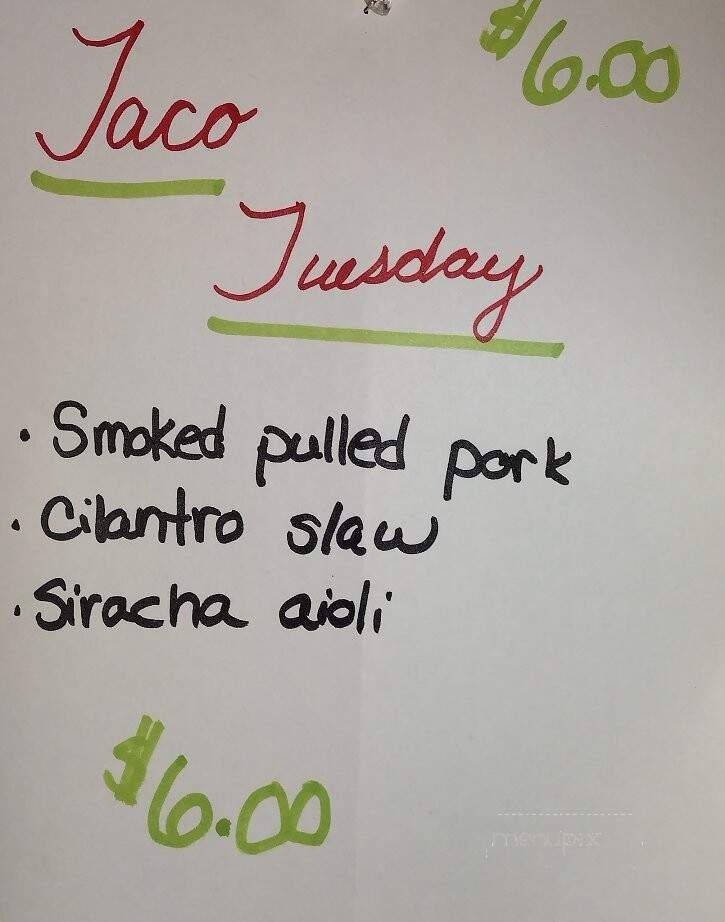 $6.00
Taco
Tuesday
• Smoked pulled pork
• Cilantro slaw
• Siracha aioli
$6.00
menupix